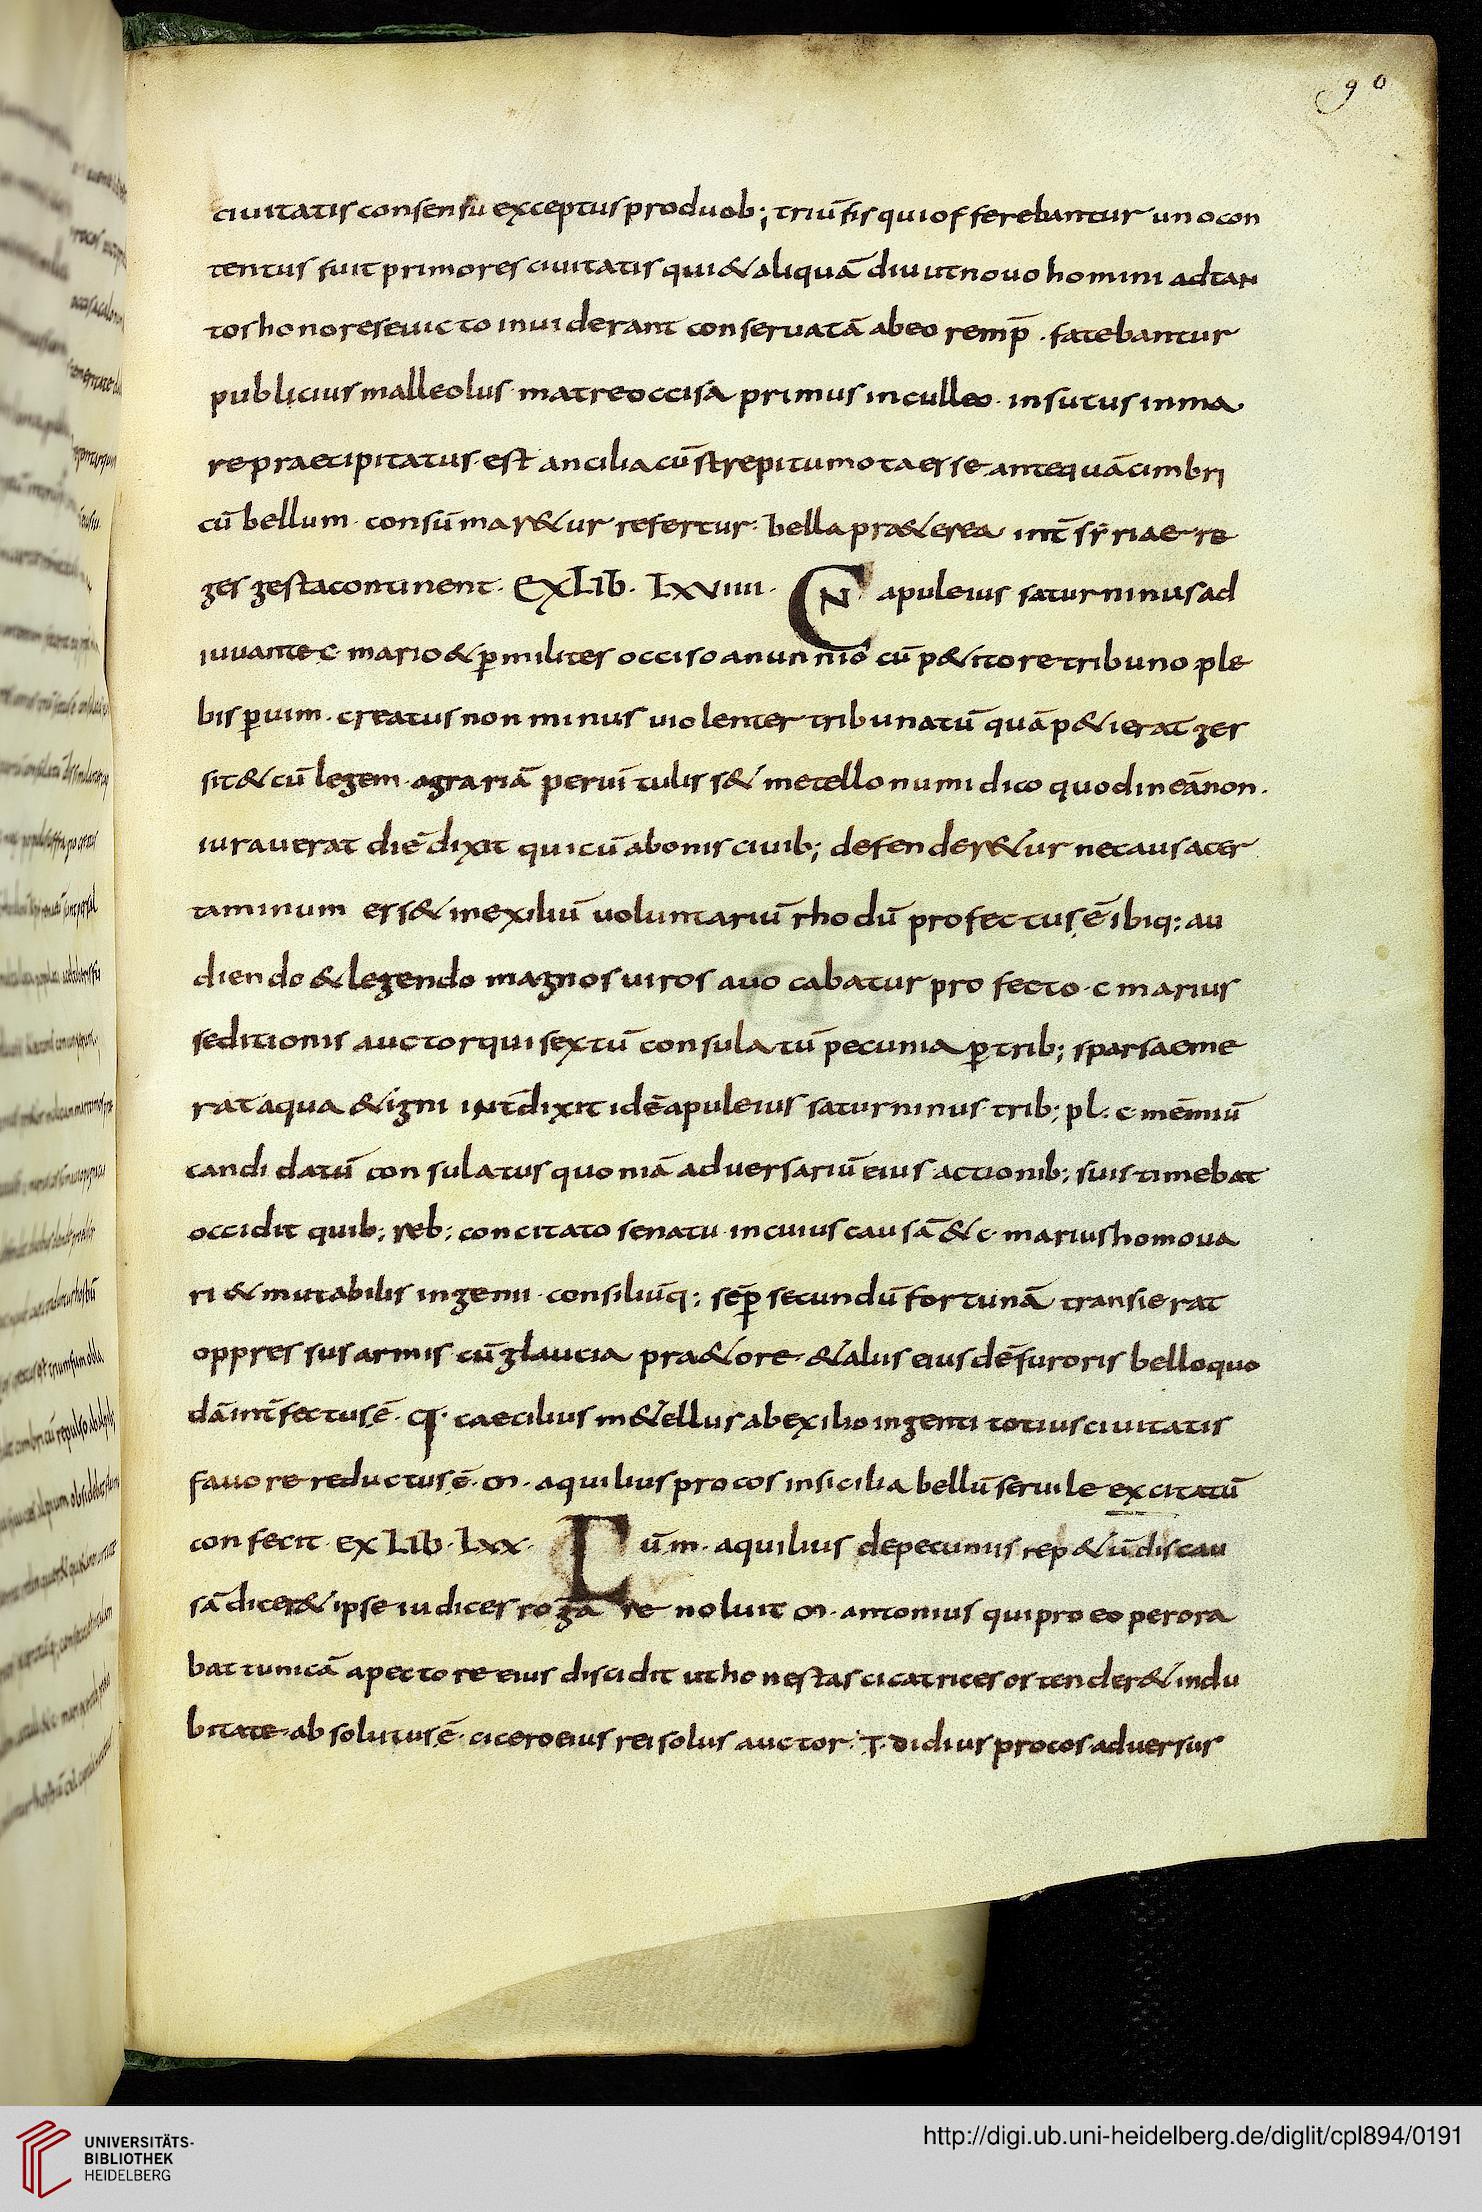 90
ciuitatis consensu exceptus produob; triūfis qui offerebantur uno con
tentus fuit primores ciuitatis qui & aliquā diu ut nouo homini ad tan
tos honores euicto inuiderant conseruatā abeo remp̄. fatebantur
publicius malleolus matre occisa primus in culleo insutus in ma
re praecipitatus est ancilia cū strepitu mota esse antequā cimbri
cū bellum consūmar&ur refertur. bella pra&erea int̄ syriae re
ges gesta continent. EX Lib. LXVIIII. CN apuleius saturninus ad
iuuante c mario & p̄ milites occiso a nunnio cū p&itore tribuno ple
bis p̄uim. creatus non minus uiolenter tribunatū quā p&ierat ges
sit & cū legem agrariā peruī tuliss& metello numidico quod in eā non
iurauerat diē dixit qui cū abonis ciuib; defender&ur ne causa cer
taminum ess& in exiliū uoluntariū rhodū profectus ē ibiq; au
diendo & legendo magnos uiros auocabatur profecto c marius
seditionis auctor qui sextū consulatū pecunia p̄ trib; sparsa eme
rat aqua & igni int̄dixit idē apuleius saturninus trib; pl. c mēmiū
candidatū consulatus quoniā aduersariū eius actionib; suis timebat
occidit quib; reb; concitato senatu in cuius causā & c marius homo ua
ri & mutabilis ingenii consiliūq; sēp̄ secundū fortunā transierat
oppressus armis cū glaucia pra&ore & aliis eiusdē furoris bello quo
dā int̄fectus ē. Q. caecilius m&ellus ab exilio ingenti totius ciuitatis
fauore reductus ē. M. aquilius procos in sicilia bellū seruile excitatū
confecit EX Lib. Lxx. Cū m. aquilius depecuniis rep&ūdis cau
sā dicer& ipse iudices rogare noluit M. antonius qui pro eo perora
bat tunicā apectore eius discidit ut honestas cicatrices ostender& indu
bitate absolutus ē. cicero eius rei solus auctor. T. didius procos aduersus
UNIVERSITÄTS-
BIBLIOTHEK
HEIDELBERG
http://digi.ub.uni-heidelberg.de/diglit/cpl894/0191